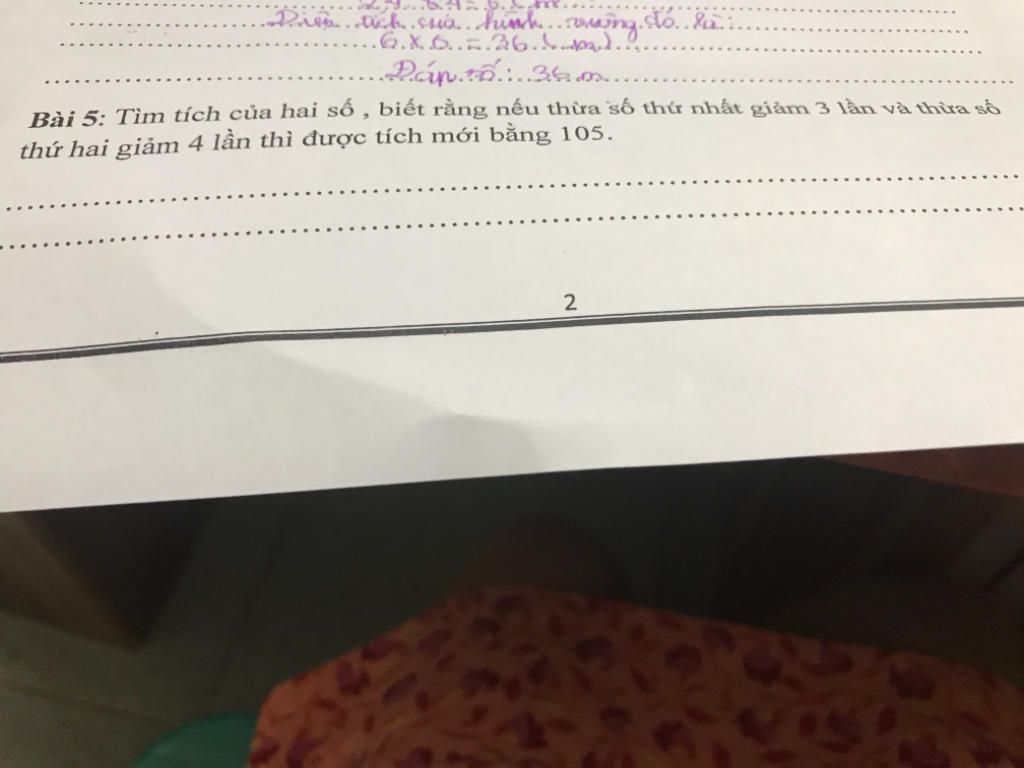 Diện tích của hình vuông đó là:
6 x 6 = 36 ( m)
Đáp số: 36 m
Bài 5: Tìm tích của hai số , biết rằng nếu thừa số thứ nhất giảm 3 lần và thừa số
thứ hai giảm 4 lần thì được tích mới bằng 105.
2